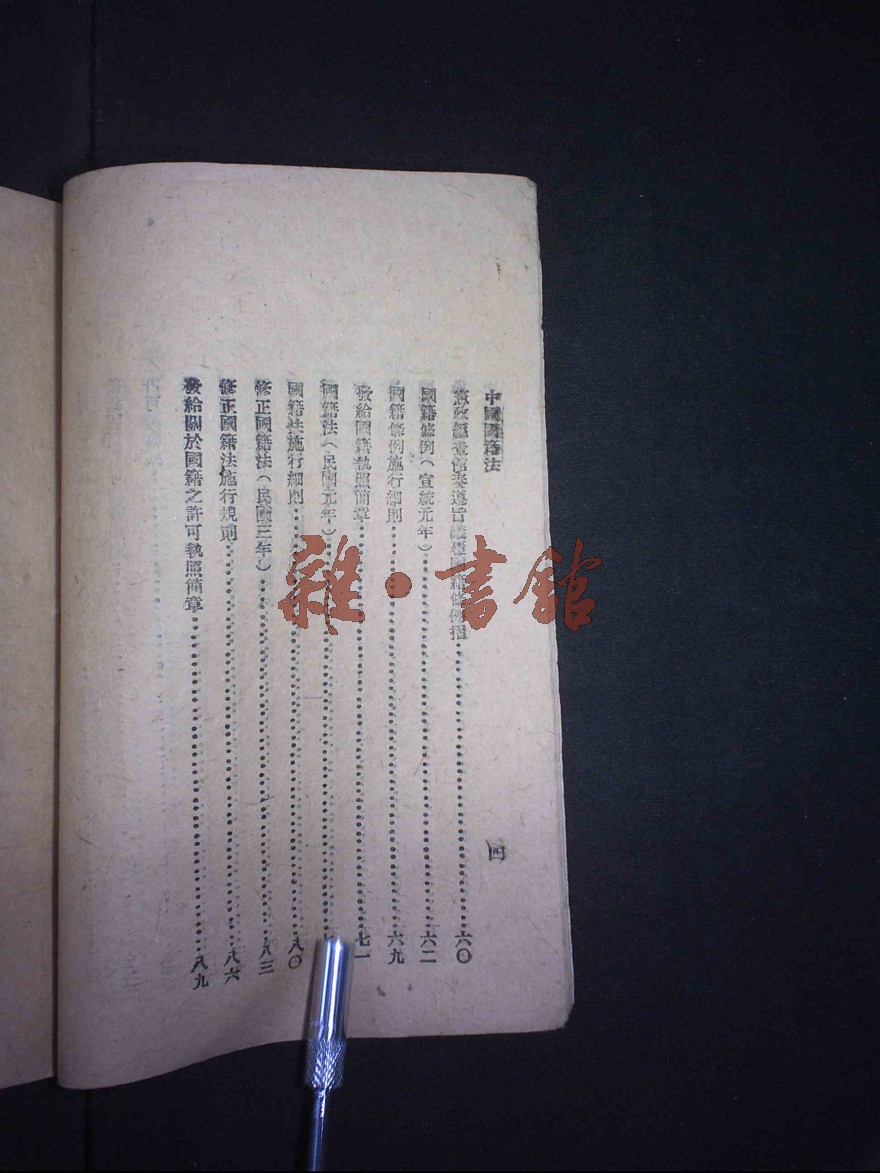 中國國籍法
四
憲政編查館奏遵旨議覆國籍條例摺……六〇
國籍條例（宣統元年）……六二
國籍條例施行細則……六九
發給國籍執照簡章……七一
國籍法（民國元年）……
國籍法施行細則……八〇
修正國籍法（民國三年）……八三
修正國籍法施行規則……八六
發給關於國籍之許可執照簡章……八九
雜·書館